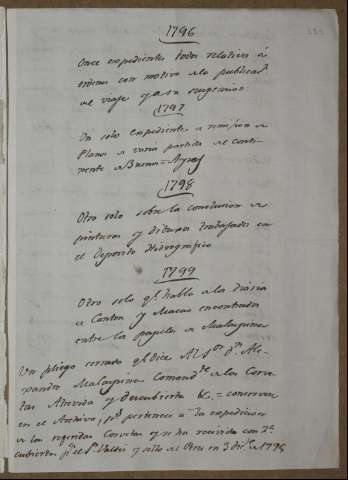 1796
Once expedientes todos relativos á
ordenes con motivo de la publicac.ⁿ
del viage y a su
1797
Un solo expediente a remision de
Planos de varios partidos del conti-
nente de Buenos-Ayres
1798
Otro solo sobre la conclusion de
pinturas y dibuxos trabajados en
el Deposito Hidrografico
1799
Otro solo q.e habla de la
de Canton y Macao encontrados
entre los papeles de Malaspina
Un pliego cerrado q.e dice Al S.or D.n Ale-
xandro Malaspina Comand.te de las Corve-
tas Atrevida y Descubierta &c. = conservese
en el Archivo, p.s pertenece a la expedicion
de las referidas Corvetas y se ha recivido con
cubierta p.r el S.r Valdés y sello de Oficio en 3 Dic.e de 1795